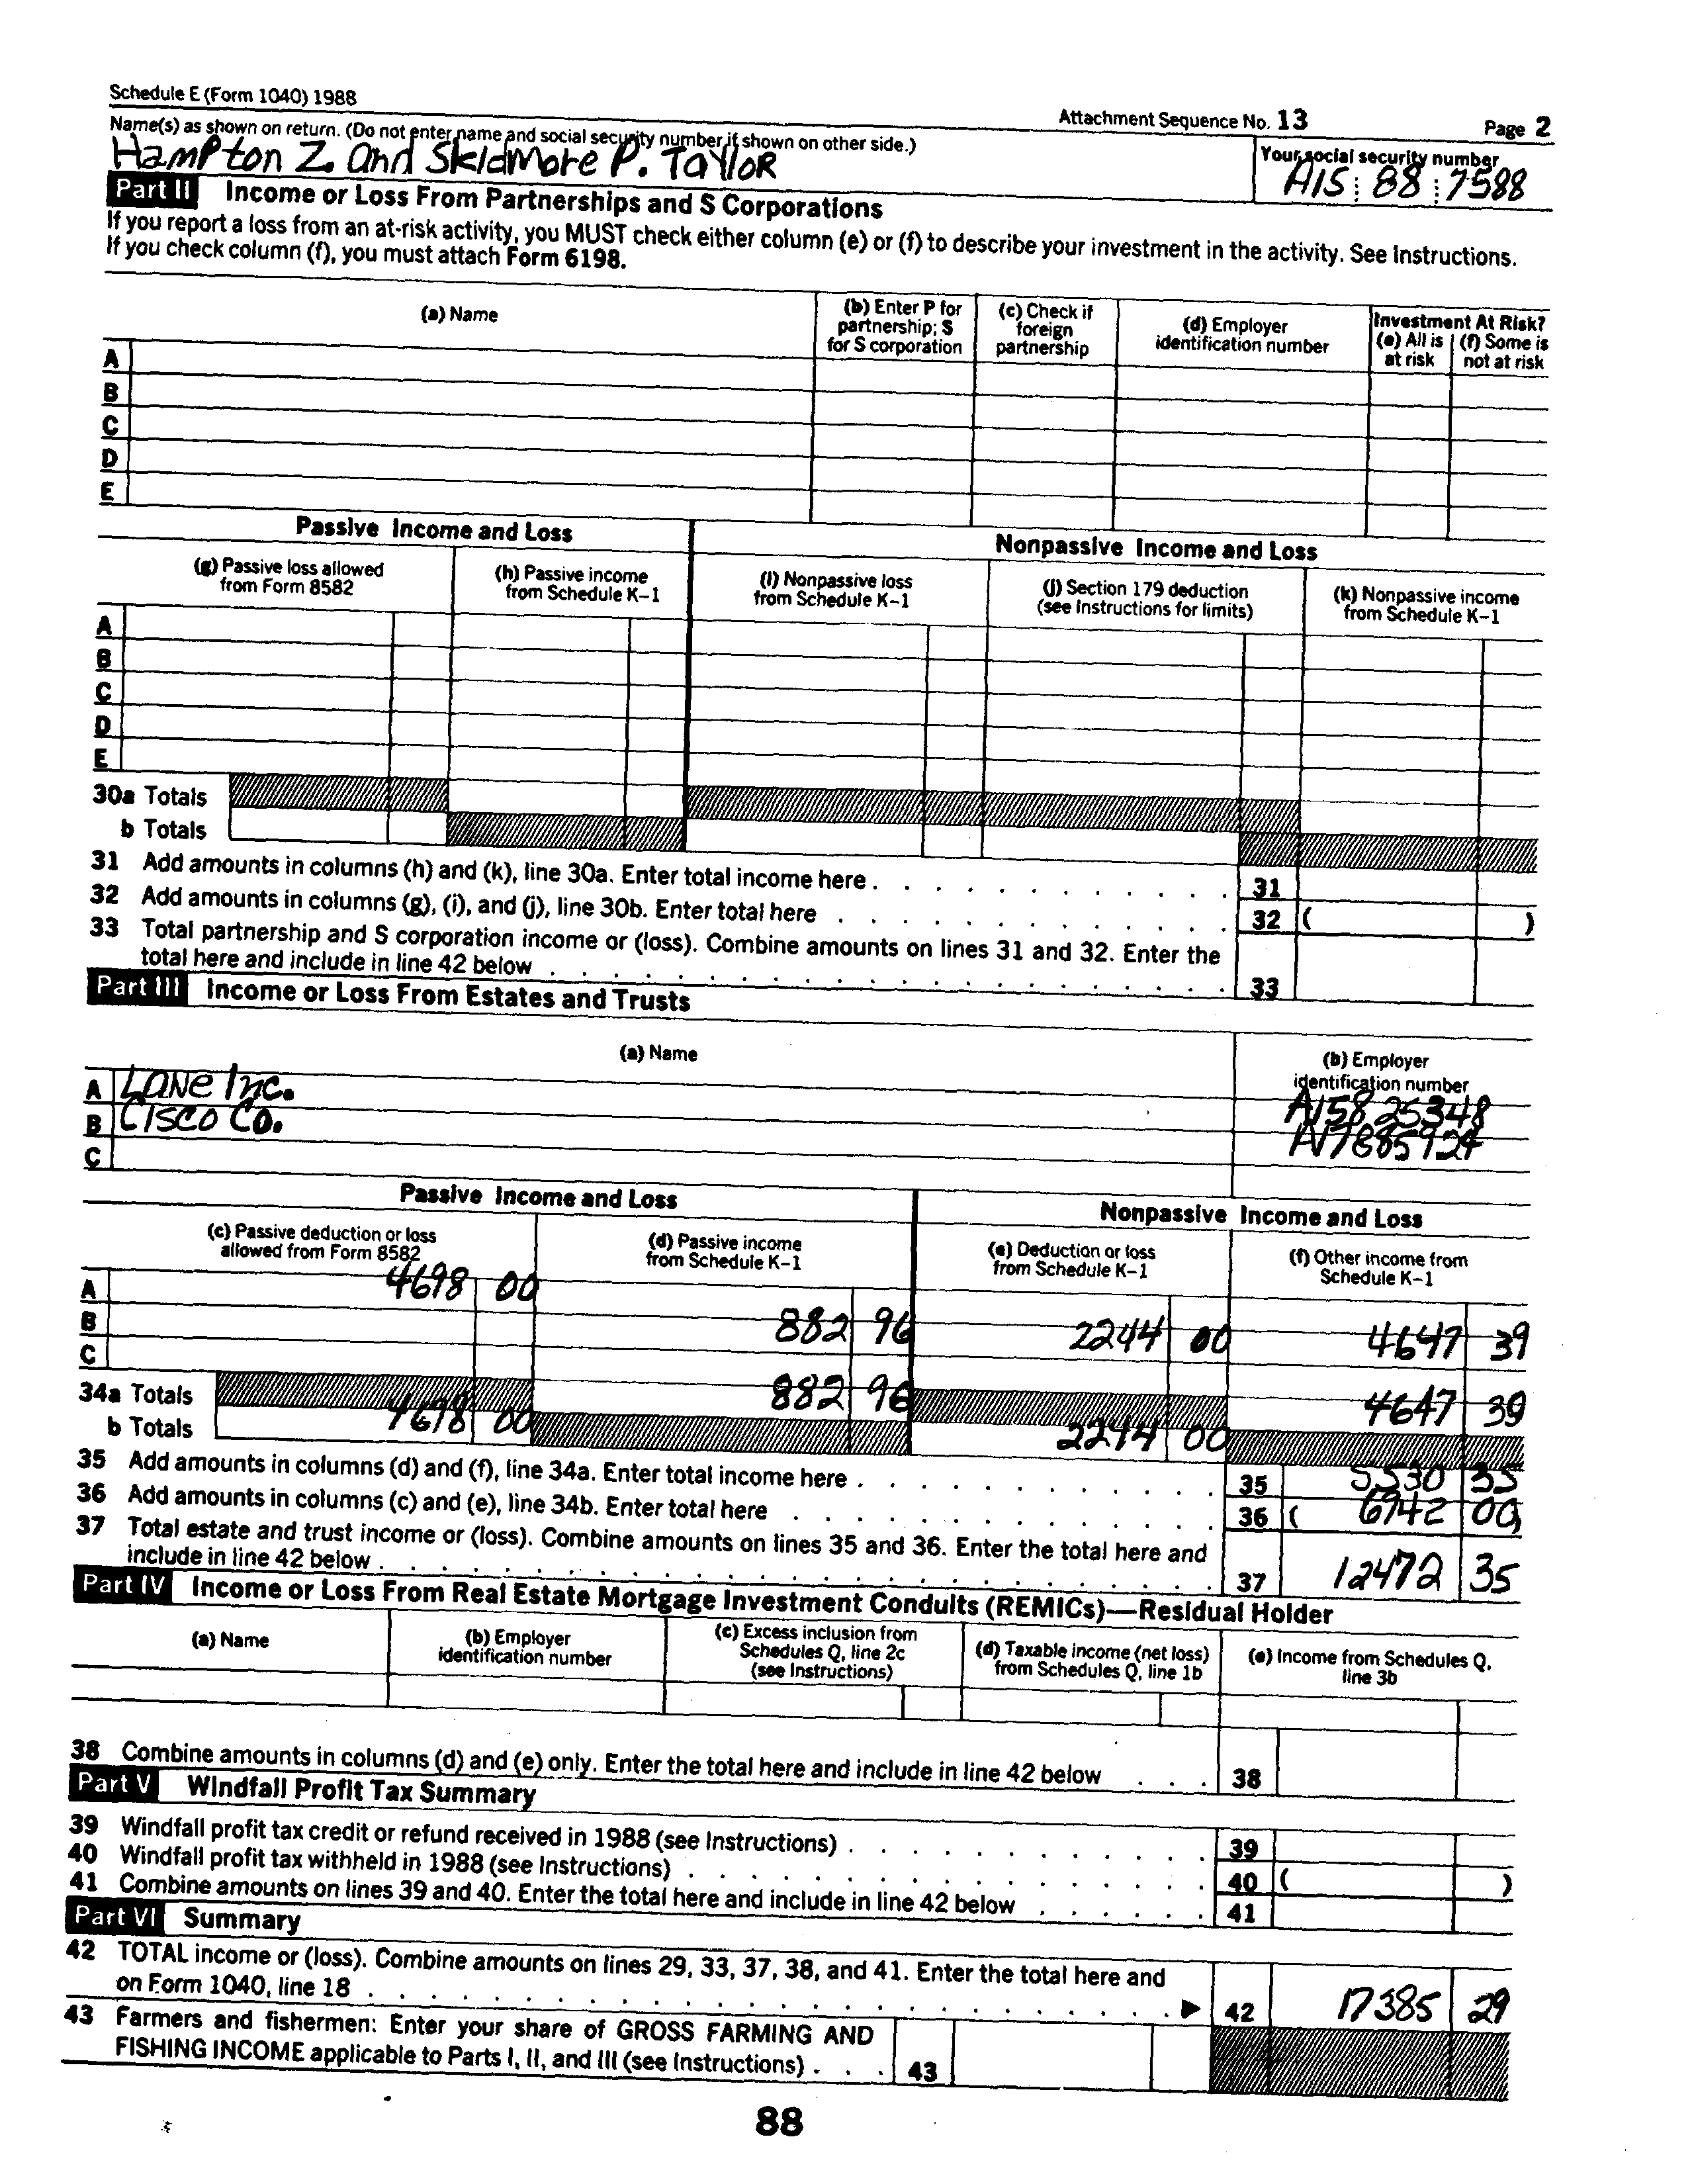 Schedule E (Form 1040) 1988
Attachment Sequence No. 13
Page 2
Name(s) as shown on return. (Do not enter name and social security number if shown on other side.)
Your social security number
Hampton Z. and Skidmore P. Taylor
A15 88 7588
Part II Income or Loss From Partnerships and S Corporations
If you report a loss from an at-risk activity, you MUST check either column (e) or (f) to describe your investment in the activity. See Instructions.
If you check column (f), you must attach Form 6198.
(a) Name
(b) Enter P for partnership; S for S corporation
(c) Check if foreign partnership
(d) Employer identification number
Investment At Risk?
(e) All is at risk
(f) Some is not at risk
A
B
C
D
E
Passive Income and Loss
Nonpassive Income and Loss
(g) Passive loss allowed from Form 8582
(h) Passive income from Schedule K-1
(i) Nonpassive loss from Schedule K-1
(j) Section 179 deduction (see Instructions for limits)
(k) Nonpassive income from Schedule K-1
A
B
C
D
E
30a Totals
b Totals
31 Add amounts in columns (h) and (k), line 30a. Enter total income here . . . 31
32 Add amounts in columns (g), (i), and (j), line 30b. Enter total here . . . 32 ( )
33 Total partnership and S corporation income or (loss). Combine amounts on lines 31 and 32. Enter the
total here and include in line 42 below . . . 33
Part III Income or Loss From Estates and Trusts
(a) Name
(b) Employer identification number
A Lane Inc. A15825348
B Cisco Co. A17885924
C
Passive Income and Loss
Nonpassive Income and Loss
(c) Passive deduction or loss allowed from Form 8582
(d) Passive income from Schedule K-1
(e) Deduction or loss from Schedule K-1
(f) Other income from Schedule K-1
A 4698 00
B 882 96 2244 00 4647 39
C
34a Totals 882 96 4647 39
b Totals 4698 00 2244 00
35 Add amounts in columns (d) and (f), line 34a. Enter total income here . . . 35 5530 35
36 Add amounts in columns (c) and (e), line 34b. Enter total here . . . 36 ( 6942 00 )
37 Total estate and trust income or (loss). Combine amounts on lines 35 and 36. Enter the total here and
include in line 42 below . . . 37 12472 35
Part IV Income or Loss From Real Estate Mortgage Investment Conduits (REMICs)—Residual Holder
(a) Name
(b) Employer identification number
(c) Excess inclusion from Schedules Q, line 2c (see Instructions)
(d) Taxable income (net loss) from Schedules Q, line 1b
(e) Income from Schedules Q, line 3b
38 Combine amounts in columns (d) and (e) only. Enter the total here and include in line 42 below . . . 38
Part V Windfall Profit Tax Summary
39 Windfall profit tax credit or refund received in 1988 (see Instructions) . . . 39
40 Windfall profit tax withheld in 1988 (see Instructions) . . . 40 ( )
41 Combine amounts on lines 39 and 40. Enter the total here and include in line 42 below . . . 41
Part VI Summary
42 TOTAL income or (loss). Combine amounts on lines 29, 33, 37, 38, and 41. Enter the total here and
on Form 1040, line 18 . . . ▶ 42 17385 29
43 Farmers and fishermen: Enter your share of GROSS FARMING AND
FISHING INCOME applicable to Parts I, II, and III (see Instructions) . . . 43
88